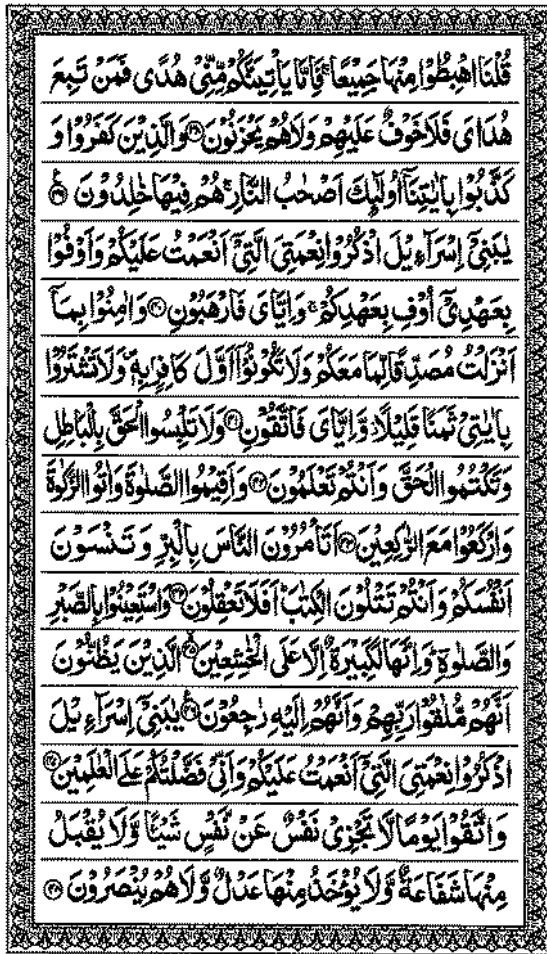 قُلْنَا اهْبِطُوْا مِنْهَا جَمِيْعًا ۚ فَاِمَّا يَاْتِيَنَّكُمْ مِّنِّىْ هُدًى فَمَنْ تَبِعَ
هُدَاىَ فَلَا خَوْفٌ عَلَيْهِمْ وَلَا هُمْ يَحْزَنُوْنَ ﴿۳۸﴾ وَالَّذِيْنَ كَفَرُوْا وَ
كَذَّبُوْا بِاٰيٰتِنَآ اُولٰٓئِكَ اَصْحٰبُ النَّارِ ۚ هُمْ فِيْهَا خٰلِدُوْنَ ﴿۳۹﴾
يٰبَنِىْٓ اِسْرَآءِيْلَ اذْكُرُوْا نِعْمَتِىَ الَّتِىْٓ اَنْعَمْتُ عَلَيْكُمْ وَاَوْفُوْا
بِعَهْدِىْٓ اُوْفِ بِعَهْدِكُمْ ۚ وَاِيَّاىَ فَارْهَبُوْنِ ﴿۴۰﴾ وَاٰمِنُوْا بِمَآ
اَنْزَلْتُ مُصَدِّقًا لِّمَا مَعَكُمْ وَلَا تَكُوْنُوْٓا اَوَّلَ كَافِرٍۢ بِهٖ ۪ وَلَا تَشْتَرُوْا
بِاٰيٰتِىْ ثَمَنًا قَلِيْلًا ۫ وَّاِيَّاىَ فَاتَّقُوْنِ ﴿۴۱﴾ وَلَا تَلْبِسُوا الْحَقَّ بِالْبَاطِلِ
وَتَكْتُمُوا الْحَقَّ وَاَنْتُمْ تَعْلَمُوْنَ ﴿۴۲﴾ وَاَقِيْمُوا الصَّلٰوةَ وَاٰتُوا الزَّكٰوةَ
وَارْكَعُوْا مَعَ الرّٰكِعِيْنَ ﴿۴۳﴾ اَتَاْمُرُوْنَ النَّاسَ بِالْبِرِّ وَتَنْسَوْنَ
اَنْفُسَكُمْ وَاَنْتُمْ تَتْلُوْنَ الْكِتٰبَ ؕ اَفَلَا تَعْقِلُوْنَ ﴿۴۴﴾ وَاسْتَعِيْنُوْا بِالصَّبْرِ
وَالصَّلٰوةِ ؕ وَاِنَّهَا لَكَبِيْرَةٌ اِلَّا عَلَى الْخٰشِعِيْنَ ﴿۴۵﴾ الَّذِيْنَ يَظُنُّوْنَ
اَنَّهُمْ مُّلٰقُوْا رَبِّهِمْ وَاَنَّهُمْ اِلَيْهِ رٰجِعُوْنَ ﴿۴۶﴾ يٰبَنِىْٓ اِسْرَآءِيْلَ
اذْكُرُوْا نِعْمَتِىَ الَّتِىْٓ اَنْعَمْتُ عَلَيْكُمْ وَاَنِّىْ فَضَّلْتُكُمْ عَلَى الْعٰلَمِيْنَ ﴿۴۷﴾
وَاتَّقُوْا يَوْمًا لَّا تَجْزِىْ نَفْسٌ عَنْ نَّفْسٍ شَيْـًٔا وَّلَا يُقْبَلُ
مِنْهَا شَفَاعَةٌ وَّلَا يُؤْخَذُ مِنْهَا عَدْلٌ وَّلَا هُمْ يُنْصَرُوْنَ ﴿۴۸﴾